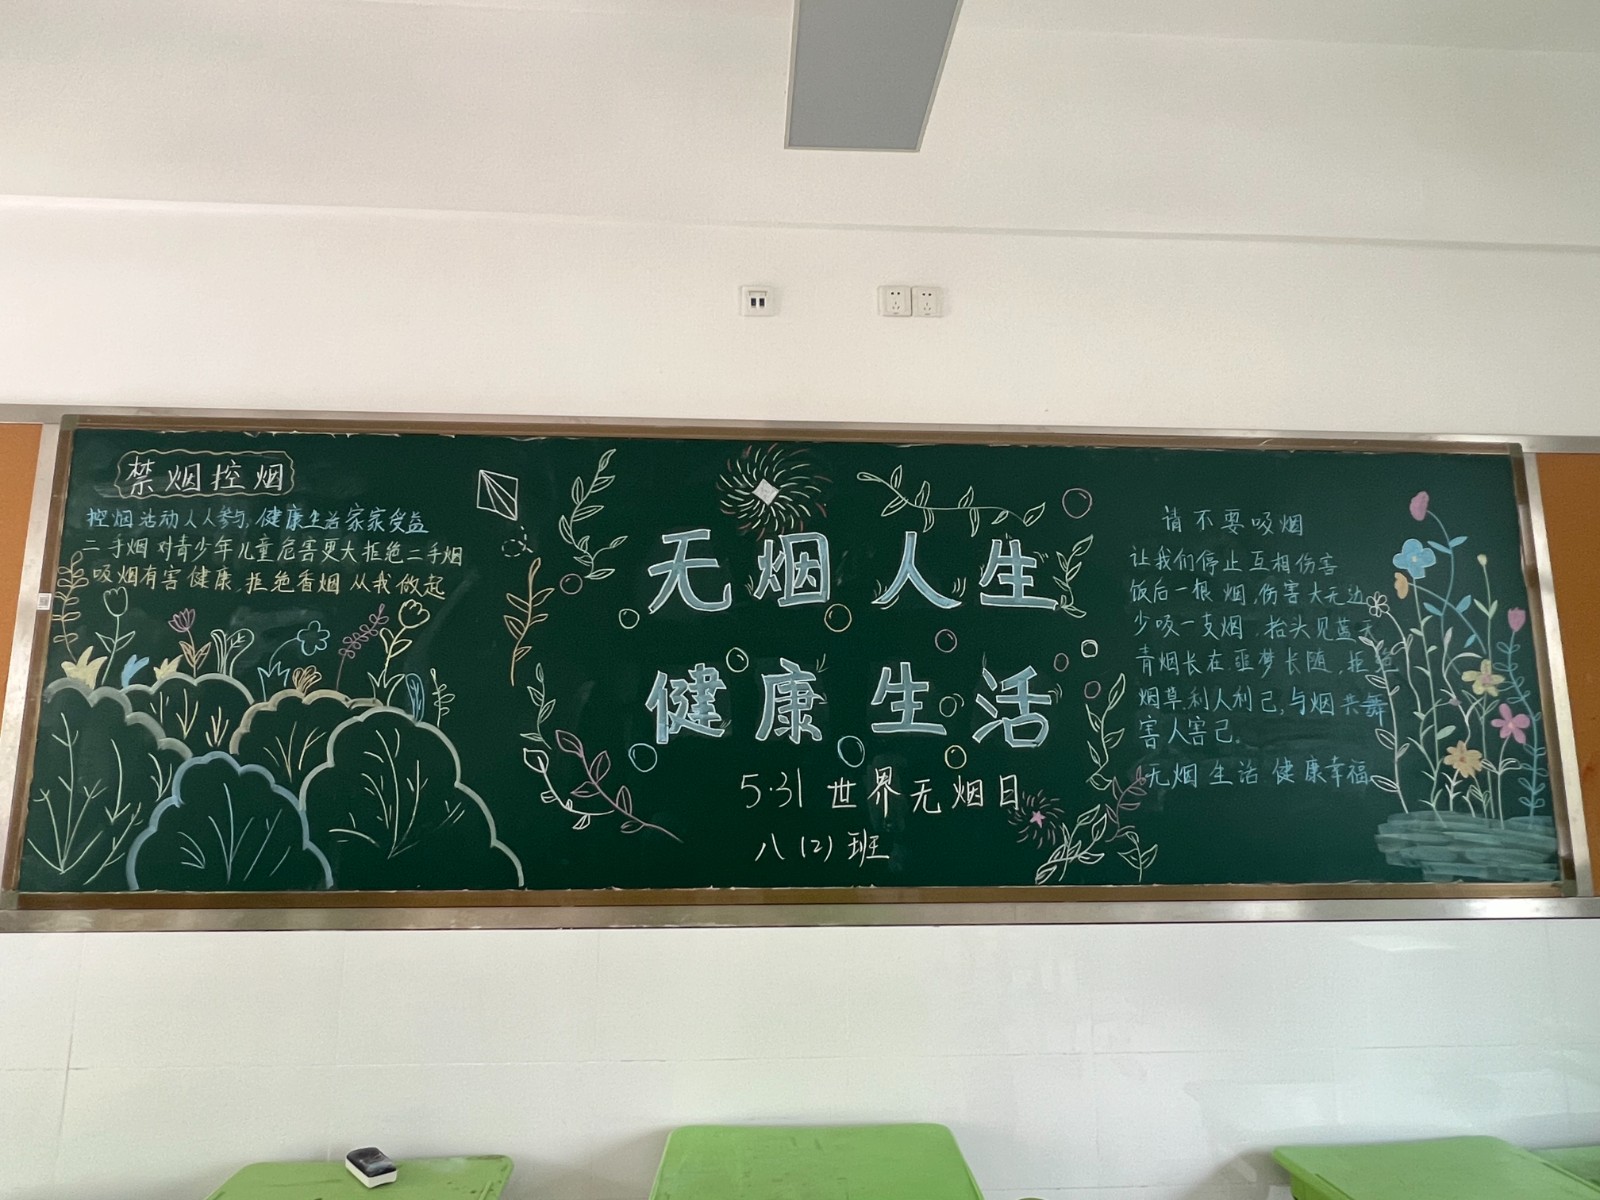 禁烟控烟
控烟活动人人参与,健康生活家家受益
二手烟对青少年儿童危害更大拒绝二手烟
吸烟有害健康,拒绝香烟 从我做起
无烟人生
健康生活
5·31 世界无烟日
八(2)班
请不要吸烟
让我们停止互相伤害
饭后一根烟,伤害大无边
少吸一支烟,抬头见蓝天
青烟长在,噩梦长随,拒绝
烟草,利人利己,与烟共舞
害人害己.
无烟生活 健康幸福